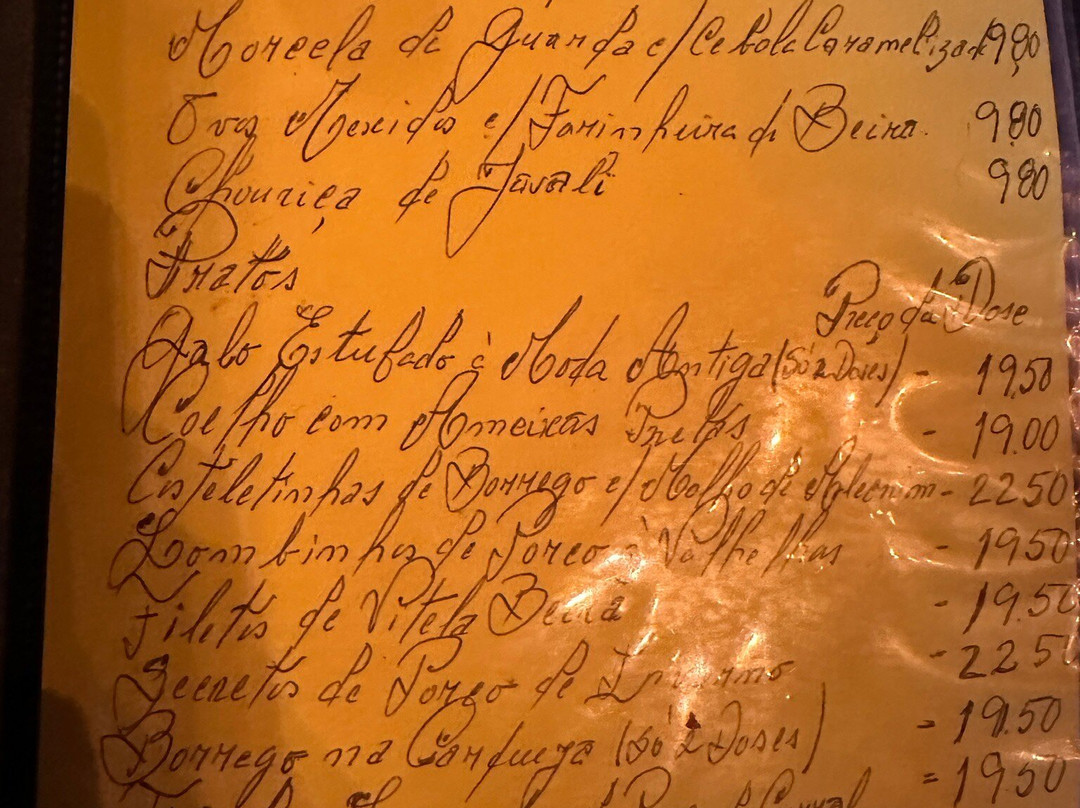 Morcela da Guarda c/ Cebola Caramelizada 9,80
Ovos Mexidos c/ Farinheira da Beira. 9,80
Chouriça de Javali 9,80
Pratos
Preço da Dose
Galo Estufado à Moda Antiga (Só 2 Doses) - 19,50
Coelho com Ameixas Pretas - 19.00
Costeletinhas de Borrego c/ Molho de Alecrim - 22.50
Lombinhos de Porco à Valhelhas - 19.50
Filetes de Vitela Beirã - 19.50
Secretos de Porco de Inverno - 22.50
Borrego na Carqueja (Só 2 Doses) = 19.50
= 19.50